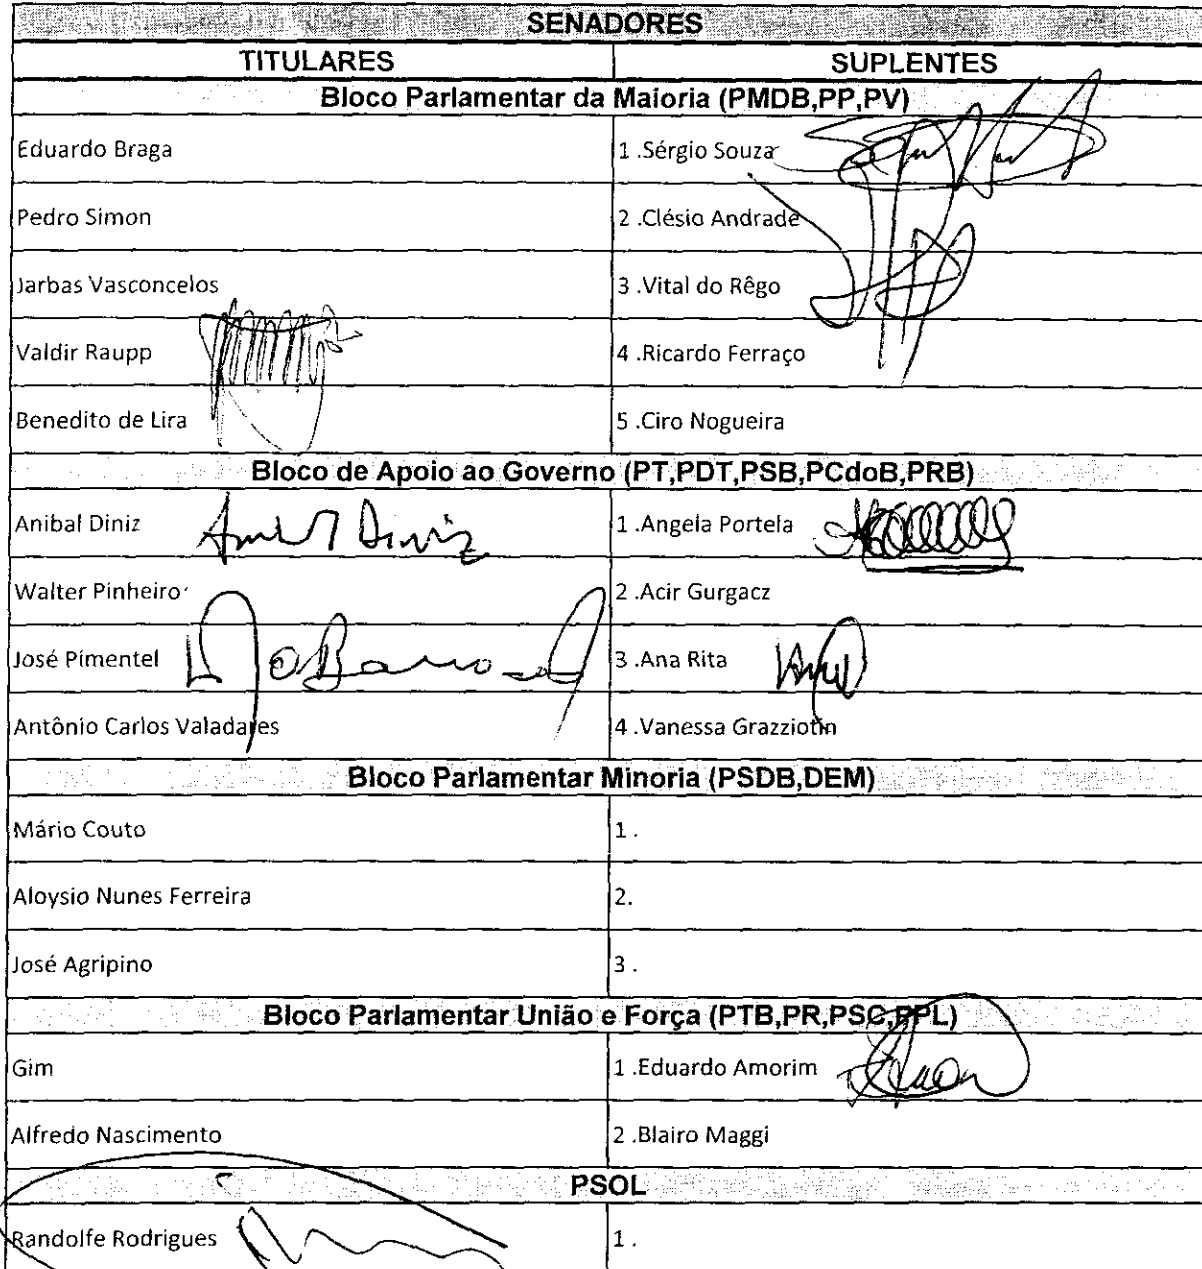 SENADORES
TITULARES SUPLENTES
Bloco Parlamentar da Maioria (PMDB,PP,PV)
Eduardo Braga 1 .Sérgio Souza
Pedro Simon 2 .Clésio Andrade
Jarbas Vasconcelos 3 .Vital do Rêgo
Valdir Raupp 4 .Ricardo Ferraço
Benedito de Lira 5 .Ciro Nogueira
Bloco de Apoio ao Governo (PT,PDT,PSB,PCdoB,PRB)
Anibal Diniz 1 .Angela Portela
Walter Pinheiro 2 .Acir Gurgacz
José Pimentel 3 .Ana Rita
Antônio Carlos Valadares 4 .Vanessa Grazziotin
Bloco Parlamentar Minoria (PSDB,DEM)
Mário Couto 1 .
Aloysio Nunes Ferreira 2.
José Agripino 3 .
Bloco Parlamentar União e Força (PTB,PR,PSC,PPL)
Gim 1 .Eduardo Amorim
Alfredo Nascimento 2 .Blairo Maggi
PSOL
Randolfe Rodrigues 1 .